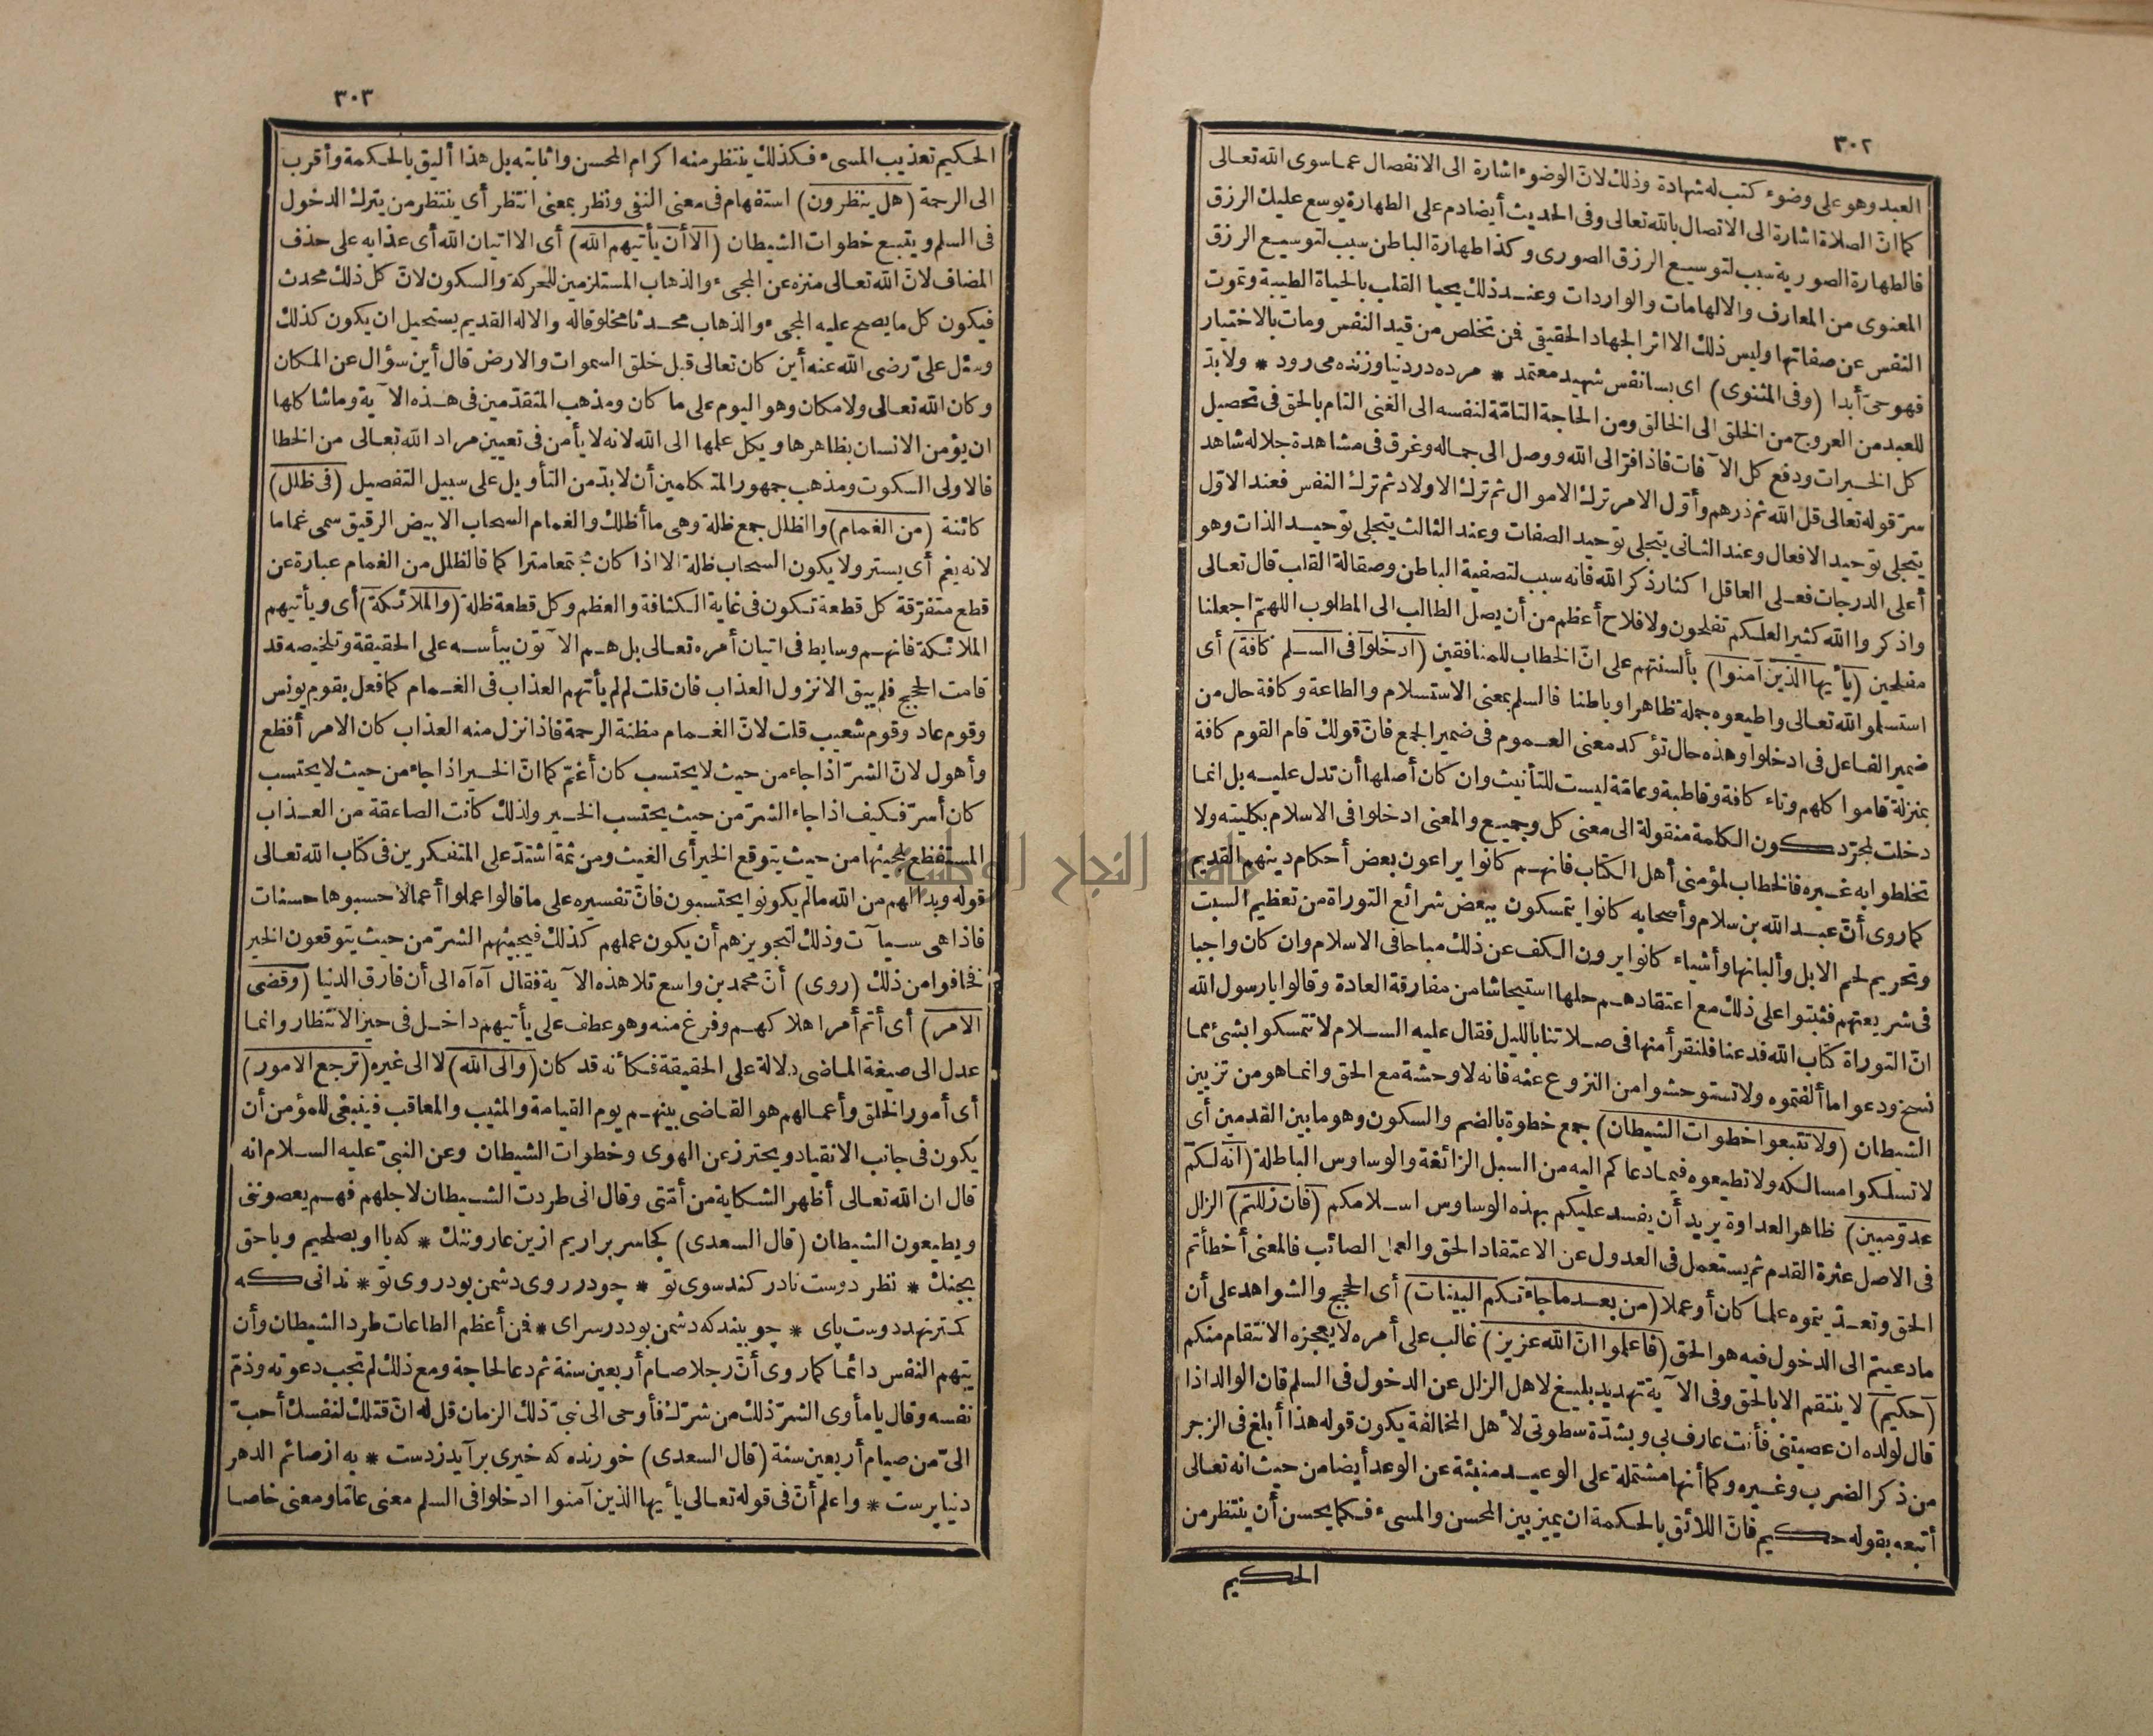 ٣٠٢
العبد وهو على وضوء كتب له شهادة وذلك لان الوضوء اشارة الى الانفصال عما سوى الله تعالى
كما ان الصلاة اشارة الى الاتصال بالله تعالى وفى الحديث أيضا دم على الطهارة يوسع عليك الرزق
فالطهارة الصورية سبب لتوسيع الرزق الصورى وكذا طهارة الباطن سبب لتوسيع الرزق
المعنوى من المعارف والالهامات والواردات وعند ذلك يحيا القلب بالحياة الطيبة وتموت
النفس عن صفاتها وليس ذلك الا اثر الجهاد الحقيقى فمن تخلص من قيد النفس ومات بالاختيار
فهو حىّ أبدا (وفى المثنوى) اى بسا نفس شهيد معتمد * مرده در دنيا وزنده مى رود * ولا بدّ
للعبد من العروج من الخلق الى الخالق ومن الحاجة التامّة لنفسه الى الغنى التام بالحق فى تحصيل
كل الخيرات ودفع كل الآفات فاذا فرّ الى الله ووصل الى جماله وغرق فى مشاهدة جلاله شاهد
سرّ قوله تعالى قل الله ثم ذرهم وأوّل الامر ترك الاموال ثم ترك الاولاد ثم ترك النفس فعند الاوّل
يتجلى توحيد الافعال وعند الثانى يتجلى توحيد الصفات وعند الثالث يتجلى توحيد الذات وهو
أعلى الدرجات فعلى العاقل اكثار ذكر الله فانه سبب لتصفية الباطن وصقالة القلب قال تعالى
واذكروا الله كثيرا لعلكم تفلحون ولا فلاح أعظم من أن يصل الطالب الى المطلوب اللهمّ اجعلنا
مفلحين (يا أيها الذين آمنوا) بألسنتهم على انّ الخطاب للمنافقين (ادخلوا فى السلم كافة) أى
استسلموا لله تعالى واطيعوه جملة ظاهرا وباطنا فالسلم بمعنى الاستسلام والطاعة وكافة حال من
ضمير الفاعل فى ادخلوا وهذه حال تؤكد معنى العموم فى ضمير الجمع فانّ قولك قام القوم كافة
بمنزلة قاموا كلهم وتاء كافة وقاطبة وعامّة ليست للتأنيث وان كان أصلها أن تدل عليه بل انما
دخلت لمجرّد كون الكلمة منقولة الى معنى كل وجميع والمعنى ادخلوا فى الاسلام بكليته ولا
تخلطوا به غيره فالخطاب لمؤمنى أهل الكتاب فانهم كانوا يراعون بعض أحكام دينهم القديم
كما روى أنّ عبد الله بن سلام وأصحابه كانوا يتمسكون ببعض شرائع التوراة من تعظيم السبت
وتحريم لحم الابل وألبانها وأشياء كانوا يرون الكف عن ذلك مباحا فى الاسلام وان كان واجبا
فى شريعتهم فثبتوا على ذلك مع اعتقادهم حلها استيحاشا من مفارقة العادة وقالوا يا رسول الله
انّ التوراة كتاب الله فدعنا فلنقرأ منها فى صلاتنا بالليل فقال عليه السلام لا تتمسكوا بشئ مما
نسخ ودعوا ما ألفتموه ولا تستوحشوا من النزوع عنه فانه لا وحشة مع الحق وانما هو من تزيين
الشيطان (ولا تتبعوا خطوات الشيطان) جمع خطوة بالضم والسكون وهو ما بين القدمين أى
لا تسلكوا مسالكه ولا تطيعوه فيما دعاكم اليه من السبل الزائغة والوساوس الباطلة (انه لكم
عدوّ مبين) ظاهر العداوة يريد أن يفسد عليكم بهذه الوساوس اسلامكم (فان زللتم) الزلل
فى الاصل عثرة القدم ثم يستعمل فى العدول عن الاعتقاد الحق والعمل الصائب فالمعنى أخطأتم
الحق وتعدّيتموه علما كان أو عملا (من بعد ما جاءتكم البينات) أى الحجج والشواهد على أن
ما دعيتم الى الدخول فيه هو الحق (فاعلموا انّ الله عزيز) غالب على أمره لا يعجزه الانتقام منكم
(حكيم) لا ينتقم الا بالحق وفى الآية تهديد بليغ لاهل الزلل عن الدخول فى السلم فان الوالد اذا
قال لولده ان عصيتنى فأنت عارف بى وبشدّة سطوتى لأهل المخالفة يكون قوله هذا أبلغ فى الزجر
من ذكر الضرب وغيره وكما أنها مشتملة على الوعيد منبئة عن الوعد أيضا من حيث انه تعالى
أتبعه بقوله حكيم فانّ اللائق بالحكمة ان يميز بين المحسن والمسىء فكما يحسن أن ينتظر من
الحكيم
٣٠٣
الحكيم تعذيب المسىء فكذلك ينتظر منه اكرام المحسن واثابته بل هذا أليق بالحكمة وأقرب
الى الرحمة (هل ينظرون) استفهام فى معنى النفى ونظر بمعنى انتظر أى ينتظر من يترك الدخول
فى السلم ويتبع خطوات الشيطان (الا أن يأتيهم الله) أى الا اتيان الله أى عذابه على حذف
المضاف لانّ الله تعالى منزه عن المجىء والذهاب المستلزمين للحركة والسكون لانّ كل ذلك محدث
فيكون كل ما يصح عليه المجىء والذهاب محدثا مخلوقا له والاله القديم يستحيل ان يكون كذلك
وسئل علىّ رضى الله عنه أين كان تعالى قبل خلق السموات والارض قال أين سؤال عن المكان
وكان الله تعالى ولا مكان وهو اليوم على ما كان ومذهب المتقدّمين فى هذه الآية وما شاكلها
ان يؤمن الانسان بظاهرها ويكل علمها الى الله لانه لا يأمن فى تعيين مراد الله تعالى من الخطا
فالاولى السكوت ومذهب جمهور المتكلمين أن لا بدّ من التأويل على سبيل التفصيل (فى ظلل)
كائنة (من الغمام) والظلل جمع ظلة وهى ما أظلك والغمام السحاب الابيض الرقيق سمى غماما
لانه يغم أى يستر ولا يكون السحاب ظلة الا اذا كان مجتمعا متراكما فالظلل من الغمام عبارة عن
قطع متفرّقة كل قطعة تكون فى غاية الكثافة والعظم وكل قطعة ظلة (والملائكة) أى ويأتيهم
الملائكة فانهم وسايط فى اتيان أمره تعالى بل هم الآتون ببأسه على الحقيقة وتلخيصه قد
قامت الحجج فلم يبق الا نزول العذاب فان قلت لم لم يأتهم العذاب فى الغمام كما فعل بقوم يونس
وقوم عاد وقوم شعيب قلت لانّ الغمام مظنة الرحمة فاذا نزل منه العذاب كان الامر أفظع
وأهول لانّ الشرّ اذا جاء من حيث لا يحتسب كان أغمّ كما انّ الخير اذا جاء من حيث لا يحتسب
كان أسرّ فكيف اذا جاء الشرّ من حيث يحتسب الخير ولذلك كانت الصاعقة من العذاب
المستفظع لمجيئها من حيث يتوقع الخير أى الغيث ومن ثمة اشتدّ على المتفكرين فى كتاب الله تعالى
قوله وبدا لهم من الله ما لم يكونوا يحتسبون فانّ تفسيره على ما قالوا عملوا أعمالا حسبوها حسنات
فاذا هى سيآت وذلك لتجويزهم أن يكون عملهم كذلك فيجيئهم الشرّ من حيث يتوقعون الخير
فخافوا من ذلك (روى) أنّ محمد بن واسع تلا هذه الآية فقال آه آه الى أن فارق الدنيا (وقضى
الامر) أى أتم أمر اهلاكهم وفرغ منه وهو عطف على يأتيهم داخل فى حيز الانتظار وانما
عدل الى صيغة الماضى دلالة على الحقيقة فكأنه قد كان (والى الله) لا الى غيره (ترجع الامور)
أى أمور الخلق وأعمالهم هو القاضى بينهم يوم القيامة والمثيب والمعاقب فينبغى للمؤمن أن
يكون فى جانب الانقياد ويحترز عن الهوى وخطوات الشيطان وعن النبىّ عليه السلام انه
قال ان الله تعالى أظهر الشكاية من أمّتى وقال انى طردت الشيطان لاجلهم فهم يعصوننى
ويطيعون الشيطان (قال السعدى) كجا سر براريم ازين عار وننك * كه با او بصلحيم وبا حق
بجنك * نظر دوست نادر كند سوى تو * چو در روى دشمن بود روى تو * ندانى كه
كمتر نهد دوست پاى * چو بيند كه دشمن بود در سراى * فمن أعظم الطاعات طرد الشيطان وأن
يتهم النفس دائما كما روى أنّ رجلا صام أربعين سنة ثم دعا لحاجة ومع ذلك لم تجب دعوته وذمّ
نفسه وقال يا مأوى الشرّ ذلك من شرّك فأوحى الى نبىّ ذلك الزمان قل له انّ قتلك لنفسك أحبّ
الىّ من صيام أربعين سنة (قال السعدى) خورنده كه خيرى برآيد زدست * به از صائم الدهر
دنيا پرست * واعلم أنّ فى قوله تعالى يا أيها الذين آمنوا ادخلوا فى السلم معنى عامّا ومعنى خاصا